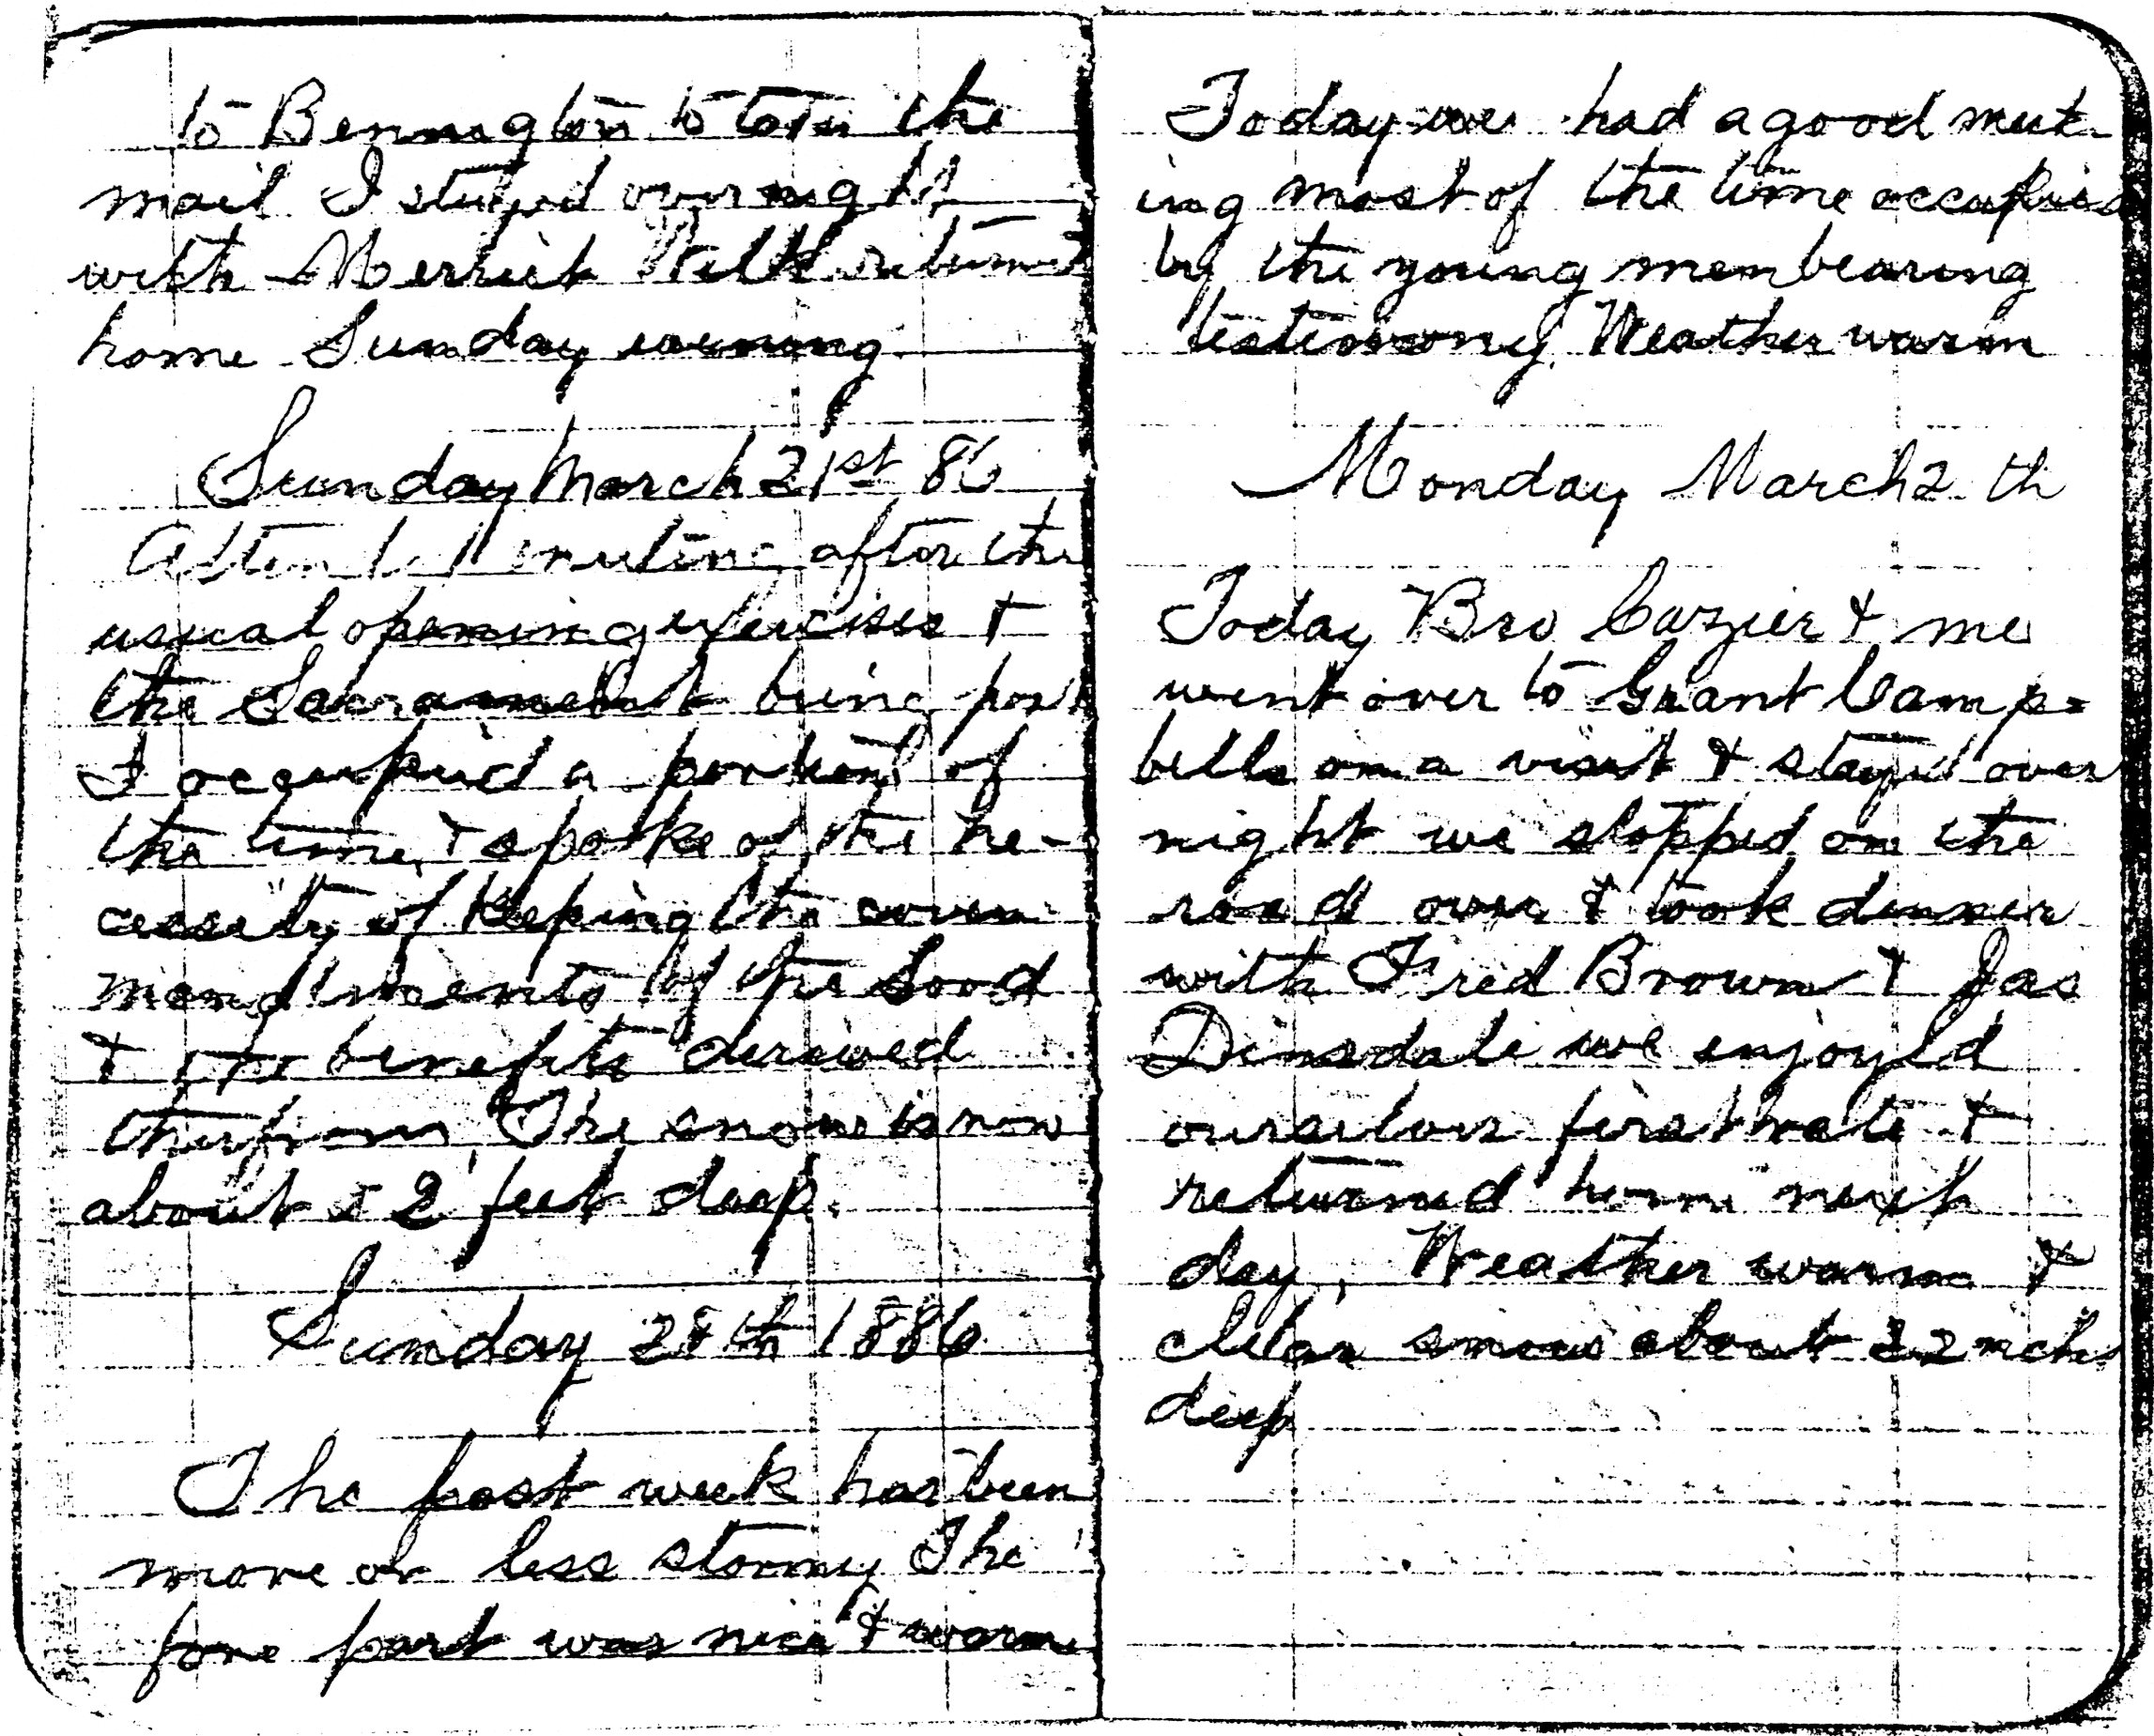 to Bennington to the
mail I stayed over night
with Merrick Welk returned
home Sunday evening
Sunday March 21st 86
Attended meeting after the
usual opening exercises &
the Sacrament being past
I occupied a portion of
the time & spoke of the ne-
cessity of keeping the com
mandments of the Lord
& the benefits derived
therfrom, The snow is now
about 2 feet deep.
Sunday 28th 1886
The past week has been
more or less stormy The
fore part was nice & warm
Today we had a good meet-
ing most of the time occupied
by the young men bearing
testimony, Weather warm
Monday March 2 th
Today Bro Cazier & me
went over to Grant Camp=
bells on a visit & stayed over
night we stopped on the
road over & took dinner
with Fred Brown & Jas
Dinsdale we enjoyed
ourselves first rate &
returned home next
day, Weather warm &
clear snow about 22 nches
deep